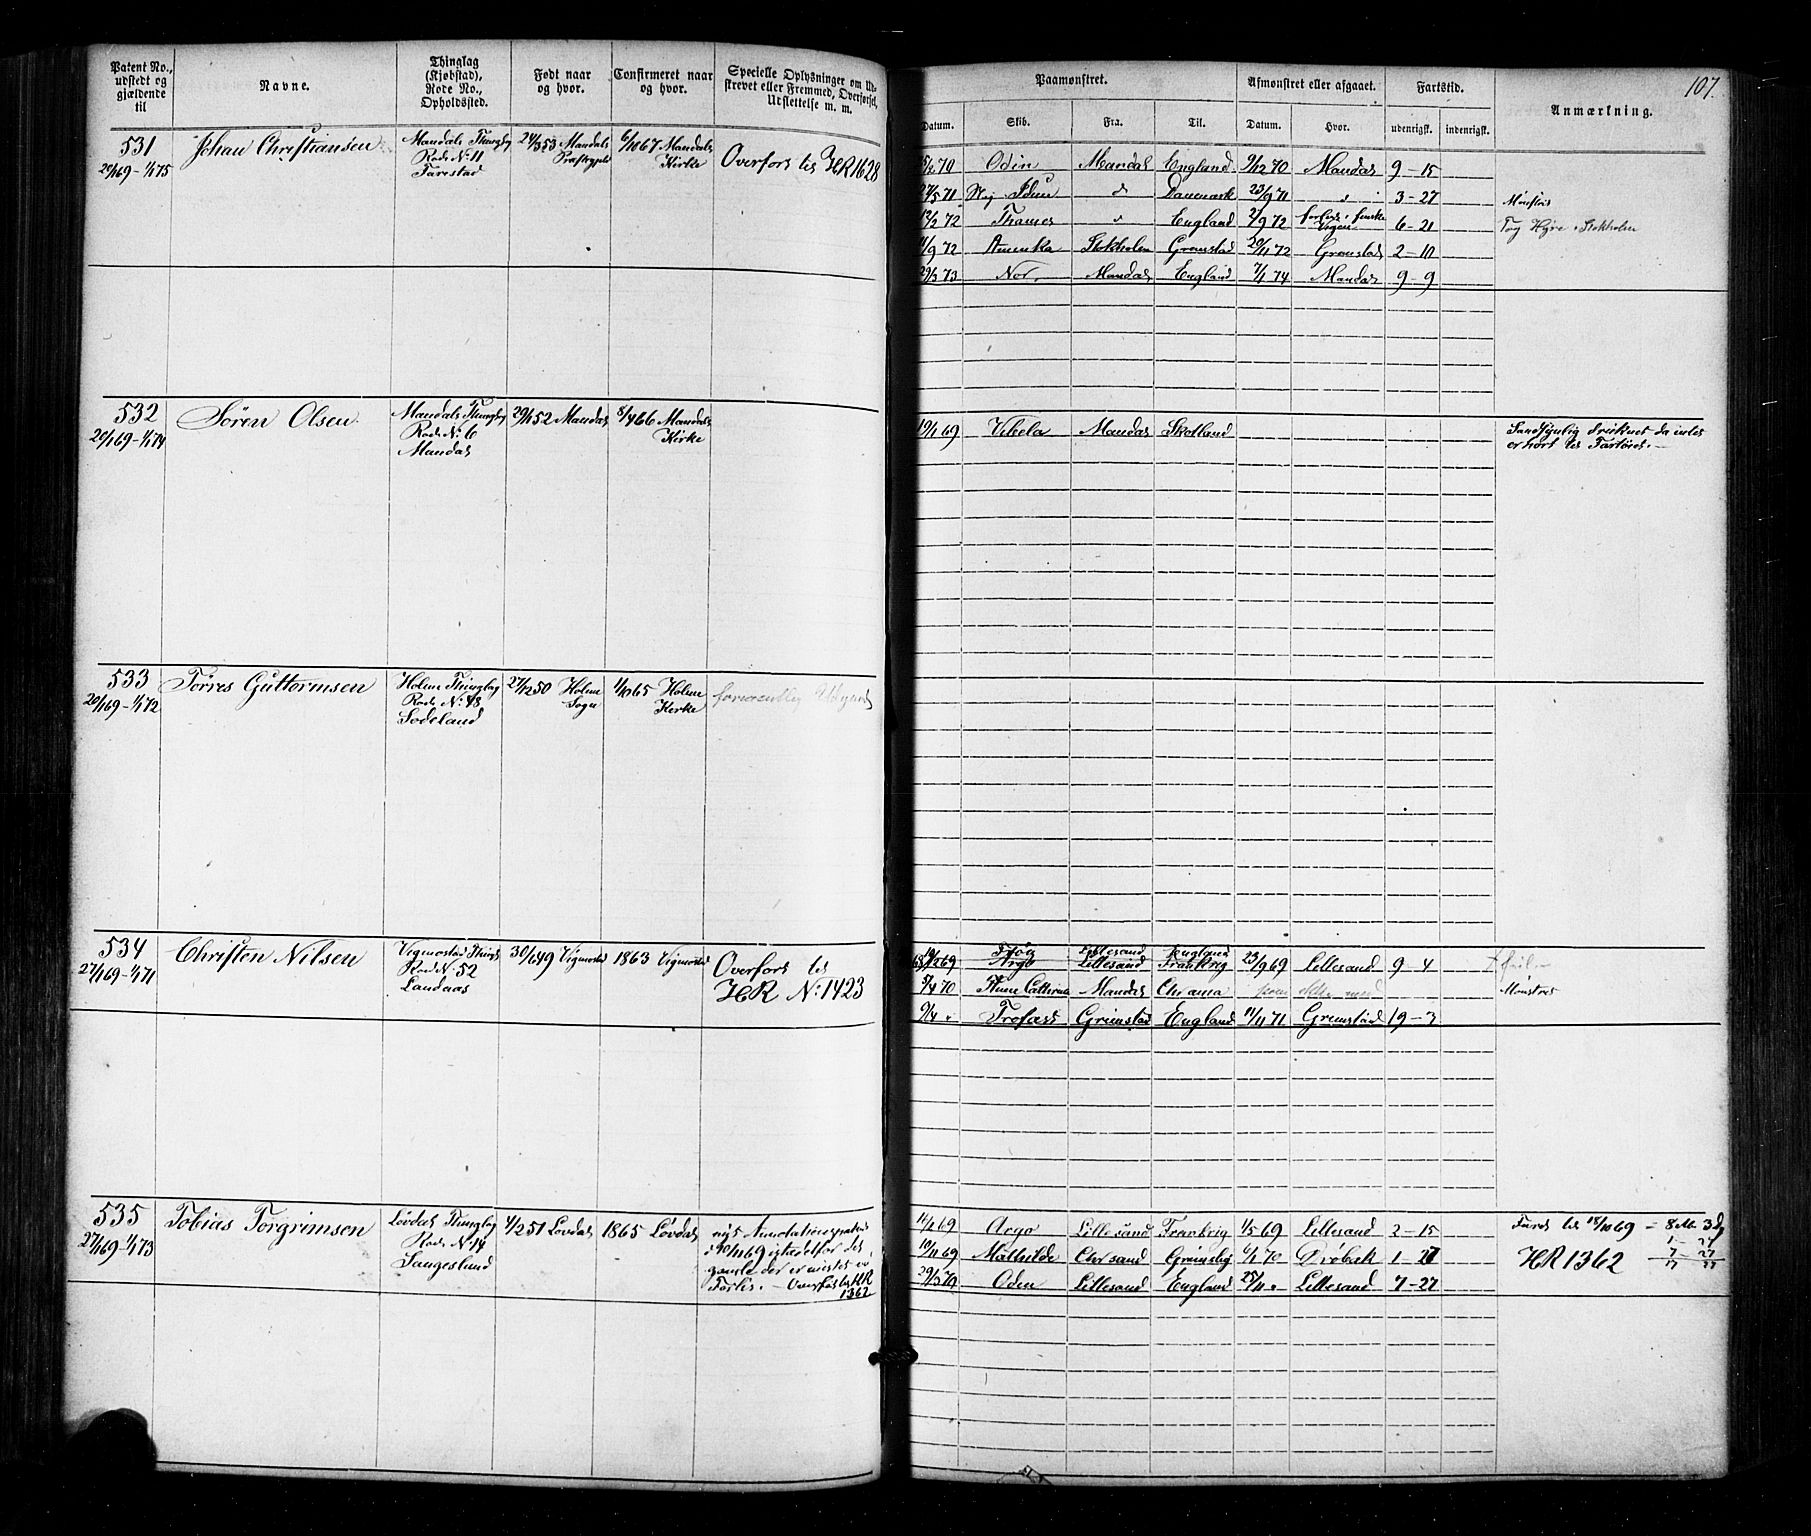 Patent No., udstedt og gjældende til
Navne.
Thinglag (Kjøbstad), Rode No., Opholdssted.
Født naar og hvor.
Confirmeret naar og hvor.
Specielle Oplysninger om Udskrevet eller Fremmed, Overførsel, Udslettelse m. m.
Paamønstret.
Datum. Skib. Fra. Til.
Afmønstret eller afgaaet.
Datum. Hvor.
Fartstid.
udenrigsk. indenrigsk.
Anmærkning.
107.
531
20/1 69 - 1/1 75
Johan Christiansen
Mandals Thinglag
Rode No 11
Tarestad
24/3 53 Mandals
Præstegjeld
6/10 67 Mandals
Kirke
Overført til HR 1628
70 Odin Mandal England 9/12 70 Mandal 9-15
27/5 71 Idun " Danmark 23/9 71 " 3-27 Mønstret
13/2 72 Thames " England 2/9 72 6-21 Tog Hyre i Stokholm
11/9 72 Amerika Stokholm Grimstad 20/11 72 Grimstad 2-10
29/3 73 Nor. Mandal England 7/1 74 Mandal 9-9
532
20/1 69 - 1/1 74
Søren Olsen.
Mandals Thinglag
Rode No 6
Mandal
29/1 52 Mandal
8/4 66 Mandals
Kirke
19/1 69 Vibela Mandal Skotland
Sandsynlig druknet da intet
er hørt til Fartøiet. -
533
20/1 69 - 1/1 72
Tørres Guttormsen
Holme Thinglag
Rode No 48
Sodeland
27/12 50 Holme
Sogn
1/10 65 Holme
Kirke
534
27/1 69 - 1/1 71
Christen Nilsen
Vigmostad Thingl
Rode No 52
Landaas
30/6 49 Vigmostad
1863 Vigmostad
Overført til
HR No 1423
Lillesand England
69 Argo Lillesand Frankrig 23/9 69 Lillesand 9-4
5/4 70 Anne Cathrine Mandal Chrania Mønstret
9/4 " Trofast Grimstad England 11/11 71 Grimstad 19-3
535
27/1 69 - 1/1 73
Tobias Torgrimsen
Løvdal Thinglag
Rode No 14
Saugeslund
4/2 51 Løvdal
1865 Løvdal
nyt
10/11 69 istedetfor det
gamle der er mistet ved
Forlis. - Overført til HR
1362
11/1 69 Argo Lillesand Frankrig 1/5 69 Lillesand 2-15
10/11 69 Mathilde Chrsand Grimsby 6/1 70 Drøbak 1-27
29/3 70 Oden Lillesand England 25/11 " Lillesand 7-27
Fared til 18/10 69 = 8 M. 3 Dg
1-27
7-27
HR 1362